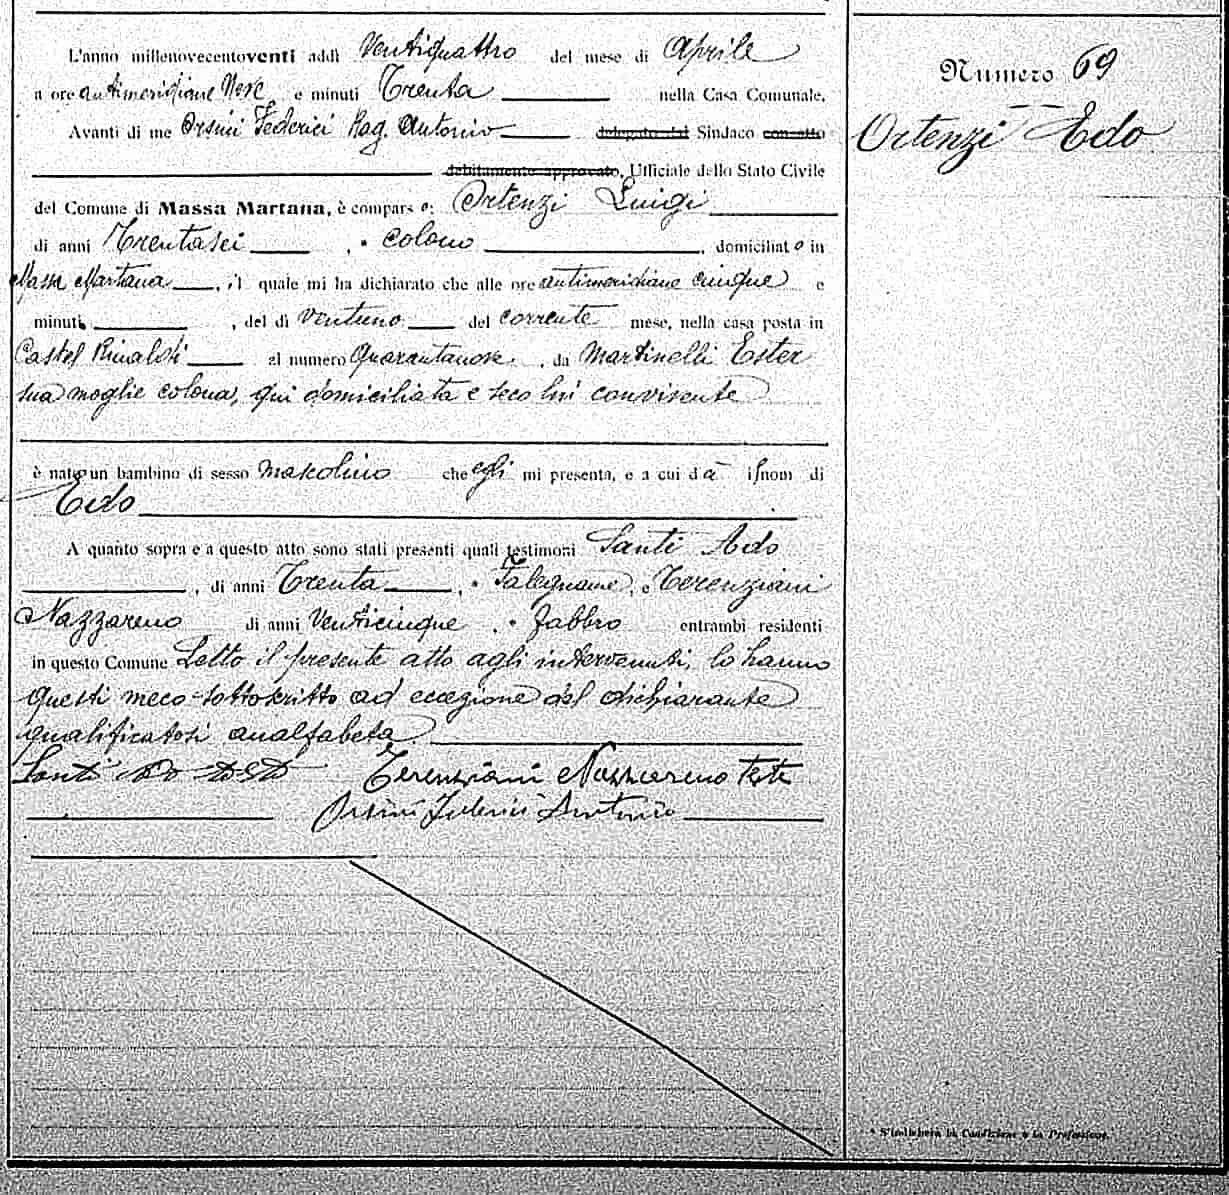 L'anno millenovecentoventi addì Ventiquattro del mese di Aprile
a ore antimeridiane Nove e minuti Trenta nella Casa Comunale.
Avanti di me Orsini Federici Rag. Antonio delegato dal Sindaco con atto
debitamente approvato, Ufficiale dello Stato Civile
del Comune di Massa Martana, è compars o: Ortenzi Luigi
di anni Trentasei, * colono, domiciliat o in
Massa Martana, il quale mi ha dichiarato che alle ore antimeridiane cinque e
minuti, del dì ventuno del corrente mese, nella casa posta in
Castel Rinaldi al numero Quarantanove, da Martinelli Ester
sua moglie colona, qui domiciliata e seco lui convivente
è nato un bambino di sesso mascolino che egli mi presenta, e a cui dà il nom di
Edo
A quanto sopra e a questo atto sono stati presenti quali testimoni Santi Ado
, di anni Trenta, * Falegname, e Terenziani
Nazzareno di anni Venticinque, * fabbro entrambi residenti
in questo Comune Letto il presente atto agli intervenuti, lo hanno
questi meco sottoscritto ad eccezione del dichiarante
qualificatosi analfabeta
Santi Ado
Terenziani Nazzareno Teste
Orsini Federici Antonio
Numero 69
Ortenzi Edo
* S'indicherà la Condizione o la Professione.